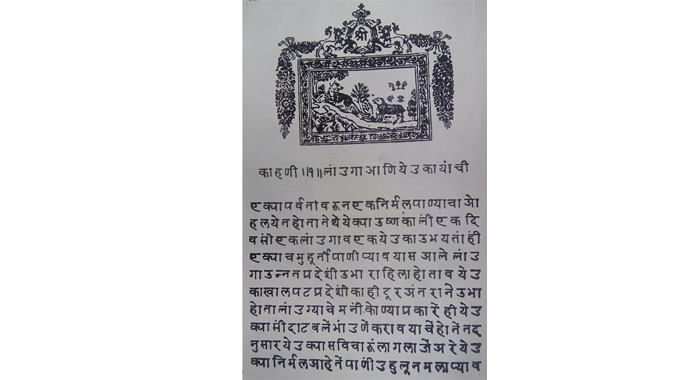 श्री
काहणी ॥१॥ लांउगा आणि येउकायांची
एक्यापर्वतावरूनएकनिर्मलपाण्याचाओ
हलयेतहोतातेथेयेक्याउष्णकालींएकदि
वसींएकलांउगावएकयेउकाउभयतांही
एक्याचमुहूर्तींपाणीप्यावयासआलेलां
गाउन्नतप्रदेशींउभाराहिलाहोतावयेउ
काखालपटप्रदेशींकाहीदूरअंतरानेउभा
होतालांउग्याचेमनींकोण्याप्रकारेंहीयेउ
क्यासींदाटबलेंभांउणेंकरावयाचेंहोतेंतद
नुसारयेउक्यासविचारूंलागलाजेंअरेयेउ
क्यानिर्मलआहेतेंपाणींउहुलूनमलाप्याव